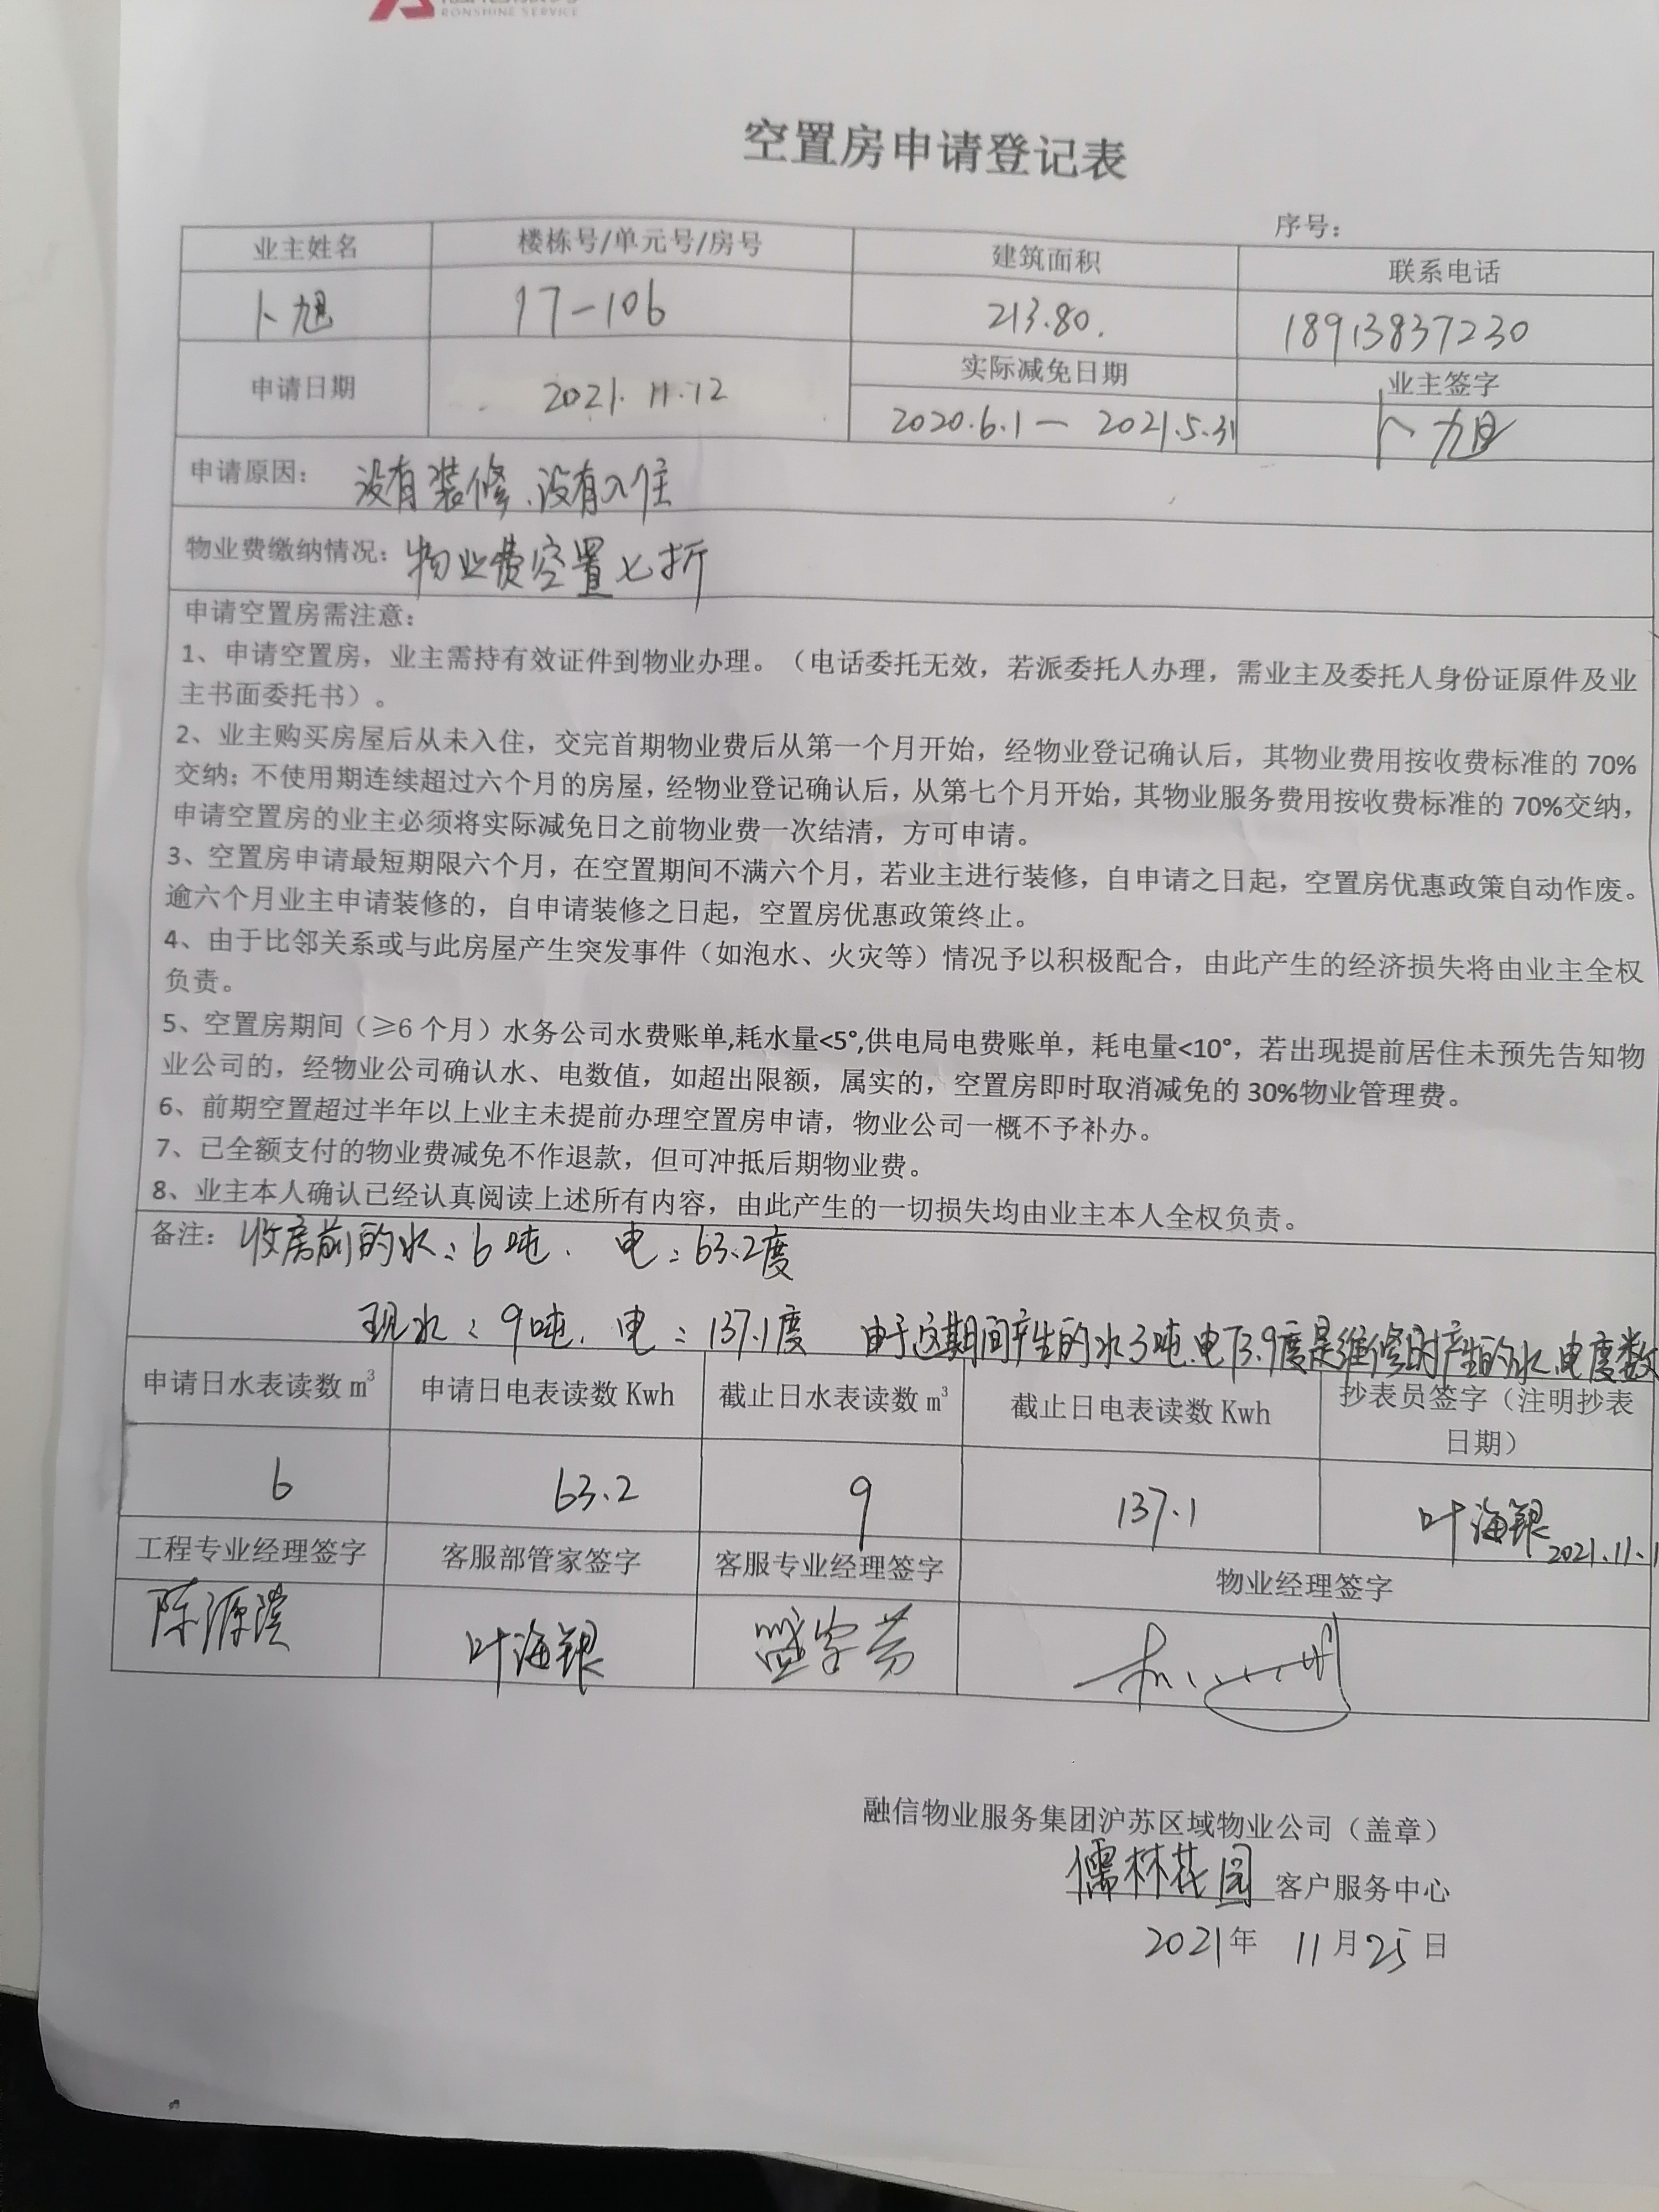 RONSHINE SERVICE
空置房申请登记表
序号：
业主姓名 楼栋号/单元号/房号 建筑面积 联系电话
卜旭 17-106 213.80. 18913837230
申请日期 2021.11.12 实际减免日期 业主签字
2020.6.1一 2021.5.31 卜旭
申请原因： 没有装修、没有入住
物业费缴纳情况：物业费空置七折
申请空置房需注意：
1、申请空置房，业主需持有效证件到物业办理。（电话委托无效，若派委托人办理，需业主及委托人身份证原件及业
主书面委托书）。
2、业主购买房屋后从未入住，交完首期物业费后从第一个月开始，经物业登记确认后，其物业费用按收费标准的 70%
交纳；不使用期连续超过六个月的房屋，经物业登记确认后，从第七个月开始，其物业服务费用按收费标准的 70%交纳，
申请空置房的业主必须将实际减免日之前物业费一次结清，方可申请。
3、空置房申请最短期限六个月，在空置期间不满六个月，若业主进行装修，自申请之日起，空置房优惠政策自动作废。
逾六个月业主申请装修的，自申请装修之日起，空置房优惠政策终止。
4、由于比邻关系或与此房屋产生突发事件（如泡水、火灾等）情况予以积极配合，由此产生的经济损失将由业主全权
负责。
5、空置房期间（≥6 个月）水务公司水费账单,耗水量<5°,供电局电费账单，耗电量<10°，若出现提前居住未预先告知物
业公司的，经物业公司确认水、电数值，如超出限额，属实的，空置房即时取消减免的 30%物业管理费。
6、前期空置超过半年以上业主未提前办理空置房申请，物业公司一概不予补办。
7、已全额支付的物业费减免不作退款，但可冲抵后期物业费。
8、业主本人确认已经认真阅读上述所有内容，由此产生的一切损失均由业主本人全权负责。
备注：收房前的水：6吨. 电：63.2度
现水：9吨. 电：137.1度 由于这期间产生的水3吨.电73.9度是维修时产生的水、电度数
申请日水表读数 m³ 申请日电表读数 Kwh 截止日水表读数 m³ 截止日电表读数 Kwh 抄表员签字（注明抄表
日期）
6 63.2 9 137.1 叶海银
2021.11.1
工程专业经理签字 客服部管家签字 客服专业经理签字 物业经理签字
叶海银
融信物业服务集团沪苏区域物业公司（盖章）
儒林花园 客户服务中心
2021年 11月25日